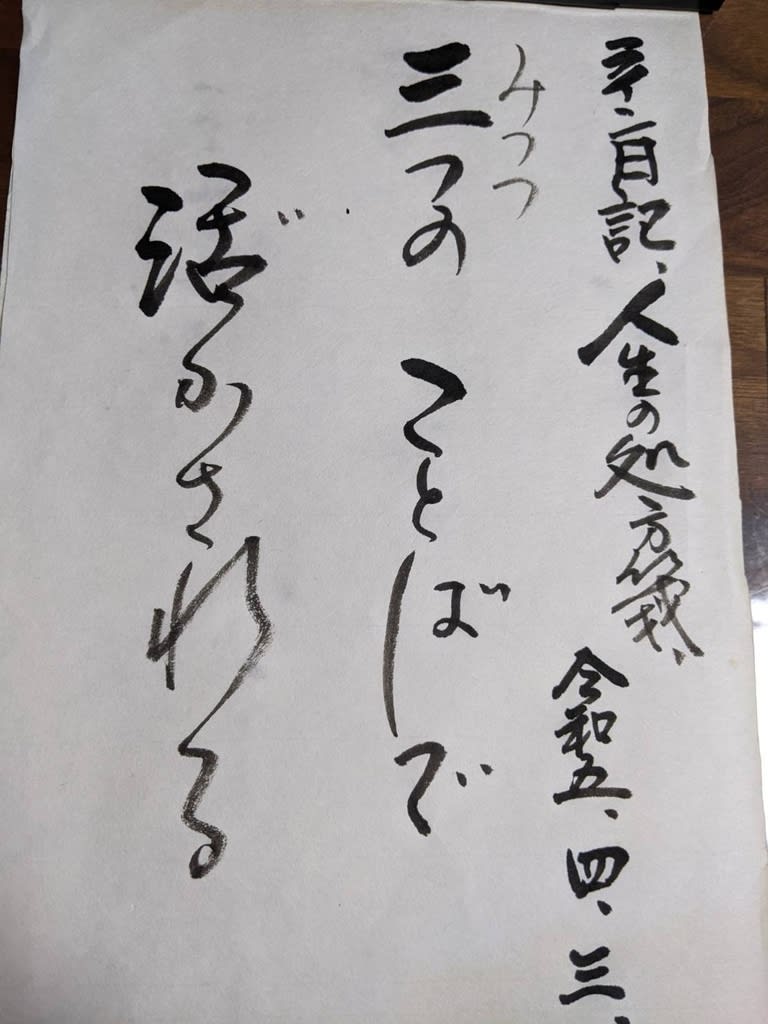 日記、人生の処方箋、令和五、四、三、
みっつ
三つの ことばで
活かされる